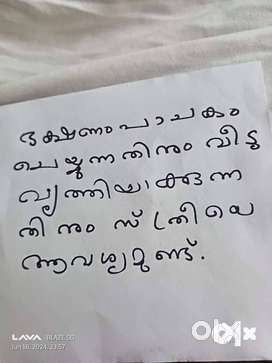 ഭക്ഷണം പാചകം
ചെയ്യുന്നതിനും വീടു
വൃത്തിയാക്കുന്ന
തിനും സ്ത്രീയെ
ആവശ്യമുണ്ട്.
LAVA BLAZE 5G
Jun 16, 2024, 23:57
OLX